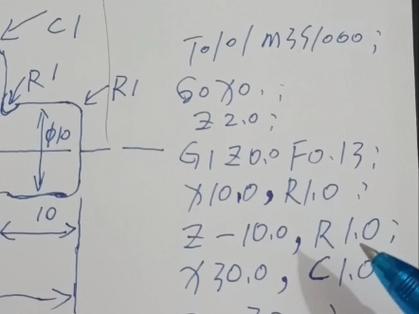 C1
R1
R1
φ10
10
T0101 M3S1000;
G0X0.;
Z2.0;
G1Z0.0F0.13;
X10.0,R1.0;
Z-10.0,R1.0;
X30.0,C1.0